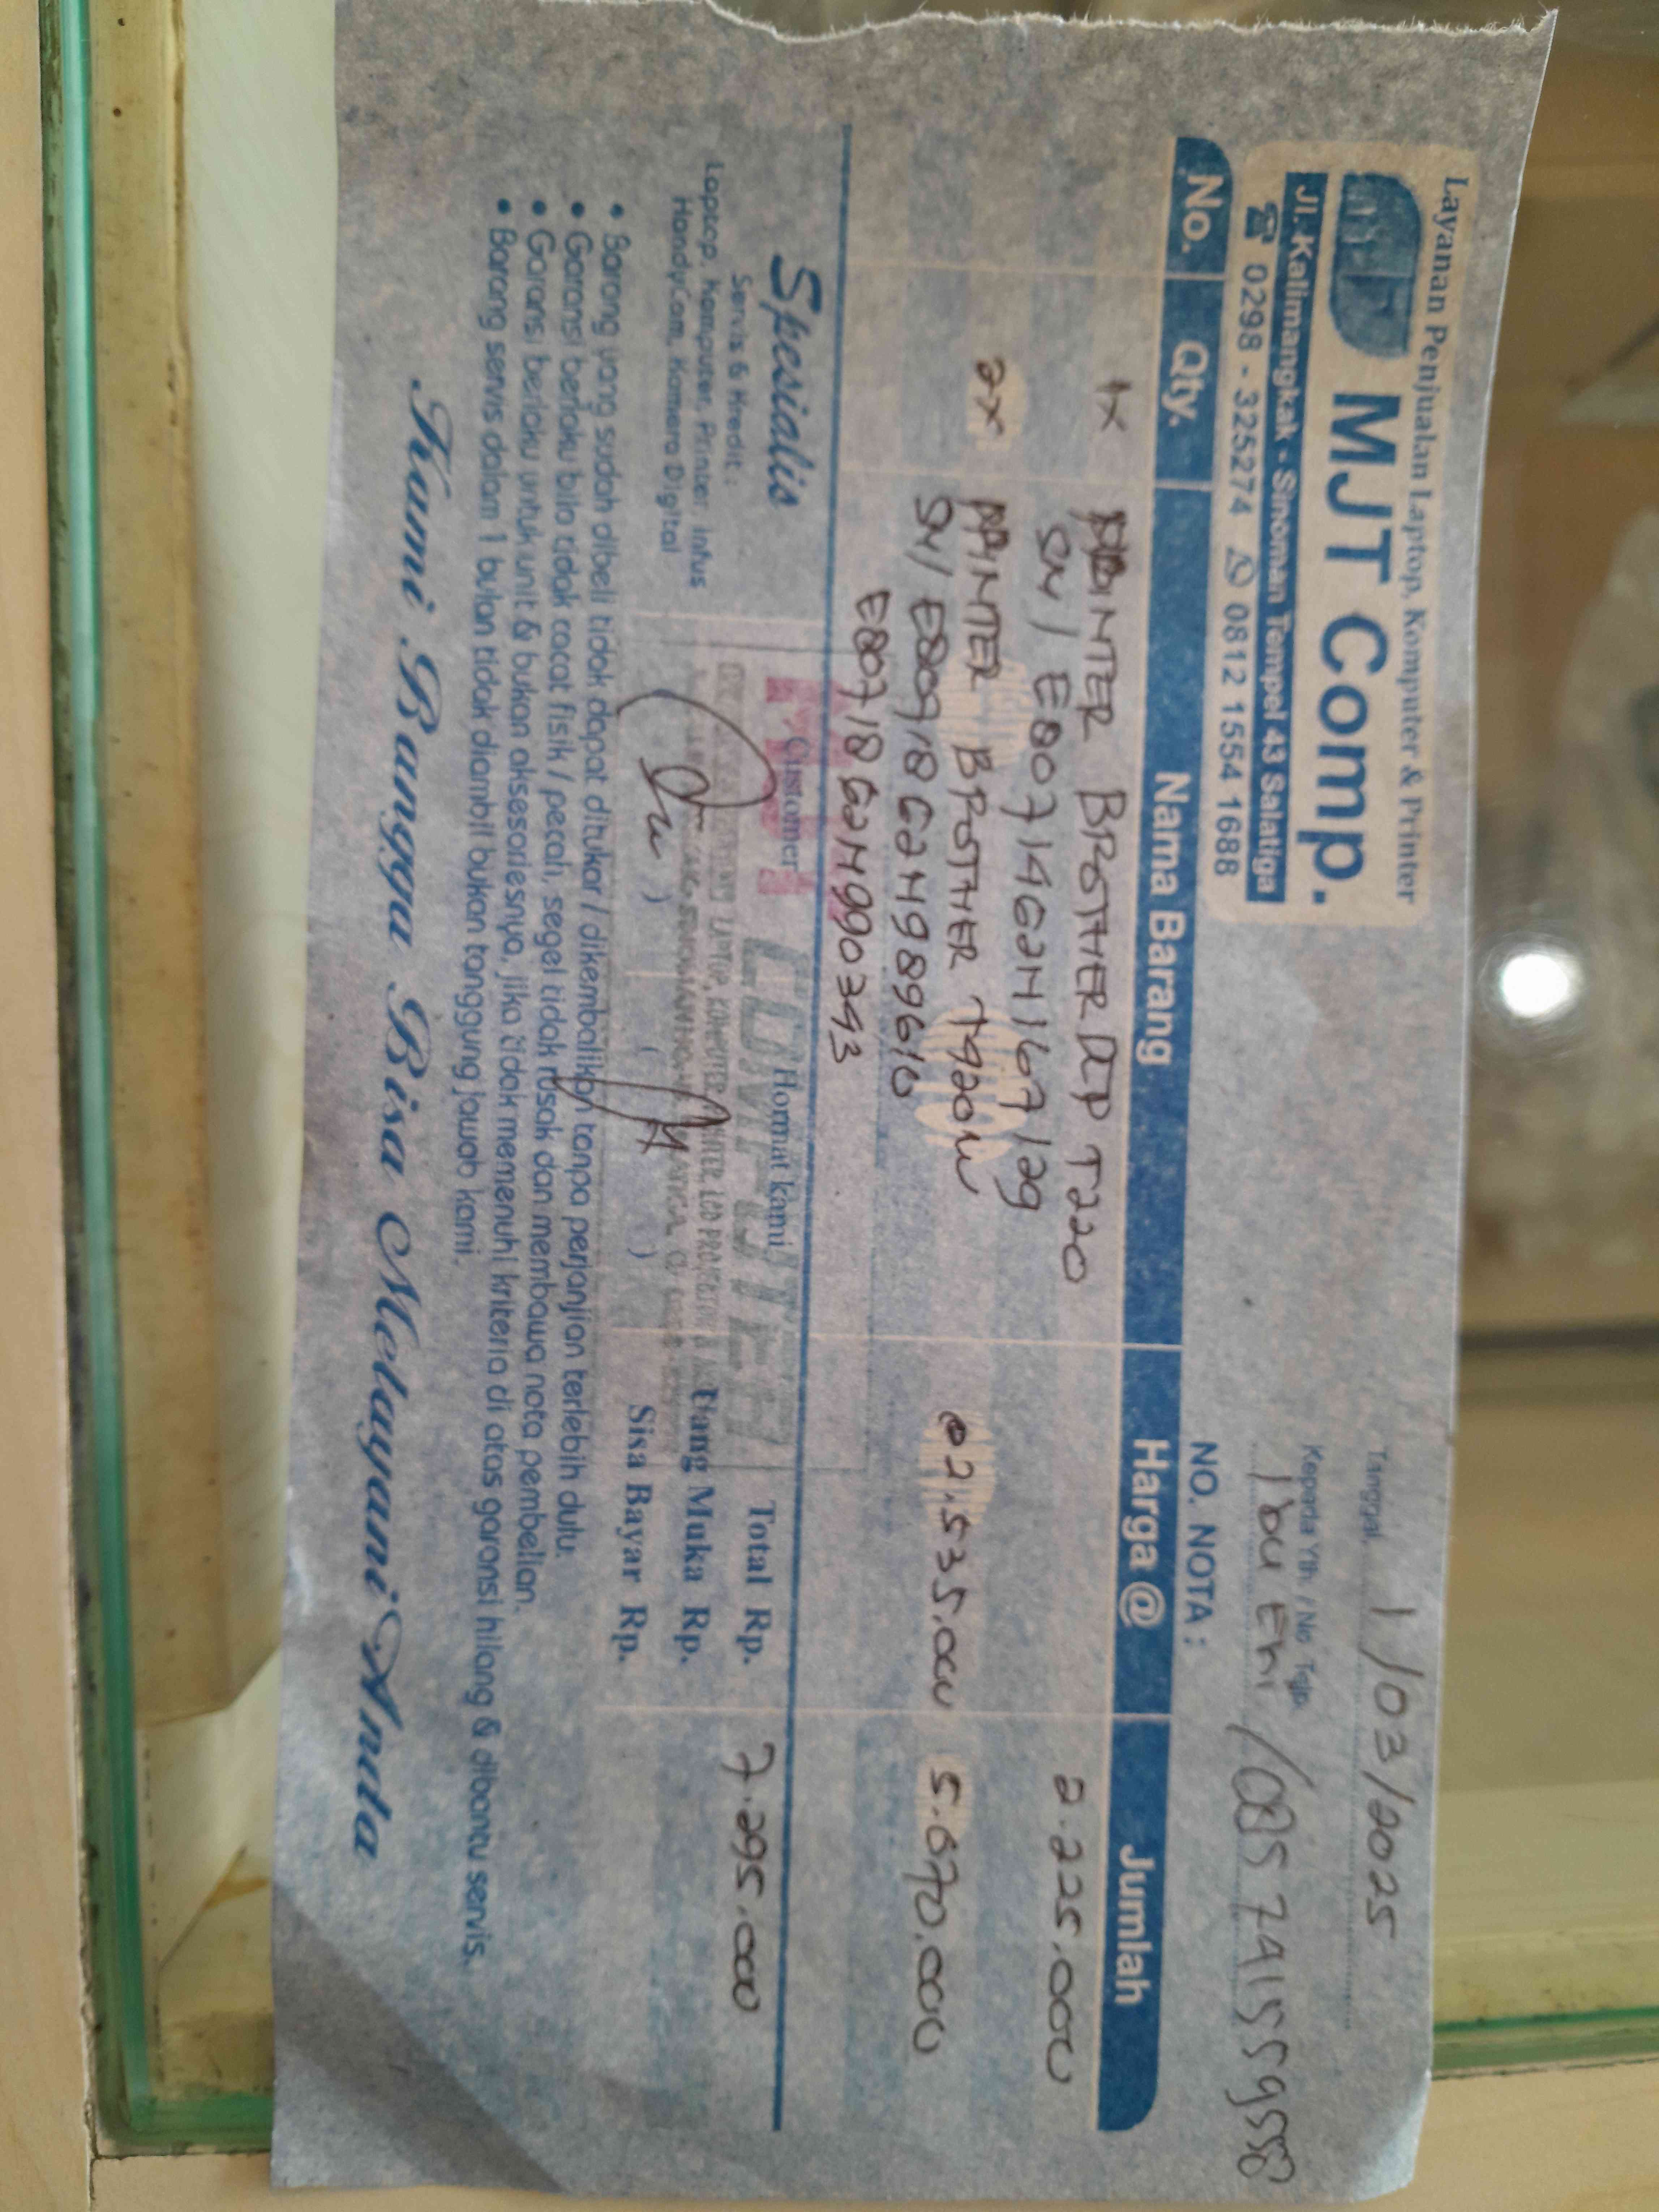 Layanan Penjualan Laptop, Komputer & Printer
MJT Comp.
Jl. Kalimangkak - Sinoman Tempel 43 Salatiga
0298 - 3252274 0812 1554 1688
Tanggal 1/03/2025
Kepada Yth / No Telp.
Ibu Eni /
NO. NOTA :
No. Qty. Nama Barang Harga @ Jumlah
1x PRINTER BROTHER DCP T220 2.225.000
SN/ E80714G2N167129
2x PRINTER BROTHER T920W @2.535.000 5.070.000
SN/ E80918G2N989610
E80718G2N990343
Spesialis
Servis & Kredit :
Laptop, Komputer, Printer, Infus
HandyCam, Kamera Digital
Customer
Hormat kami
COMPUTER
Total Rp. 7.295.000
Uang Muka Rp.
Sisa Bayar Rp.
• Barang yang sudah dibeli tidak dapat ditukar / dikembalikan tanpa perjanjian terlebih dulu.
• Garansi berlaku bila tidak cacat fisik / pecah, segel tidak rusak dan membawa nota pembelian.
• Garansi berlaku untuk unit & bukan aksesoriesnya, jika tidak memenuhi kriteria di atas garansi hilang & dibantu servis.
• Barang servis dalam 1 bulan tidak diambil bukan tanggung jawab kami.
Kami Bangga Bisa Melayani Anda